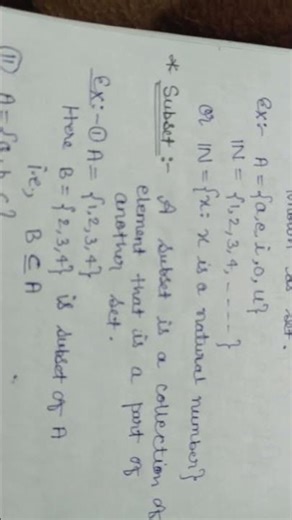 known as set.
Ex:- A = {a, e, i, o, u}
IN = {1, 2, 3, 4, - - - - }
or IN = {x: x is a natural number}
* Subset :- A subset is a collection of
element that is a part of
another set.
Ex:- ① A = {1, 2, 3, 4}
Here B = {2, 3, 4} is subset of A
i.e, B ⊆ A
⑪ A = {a, b, c}